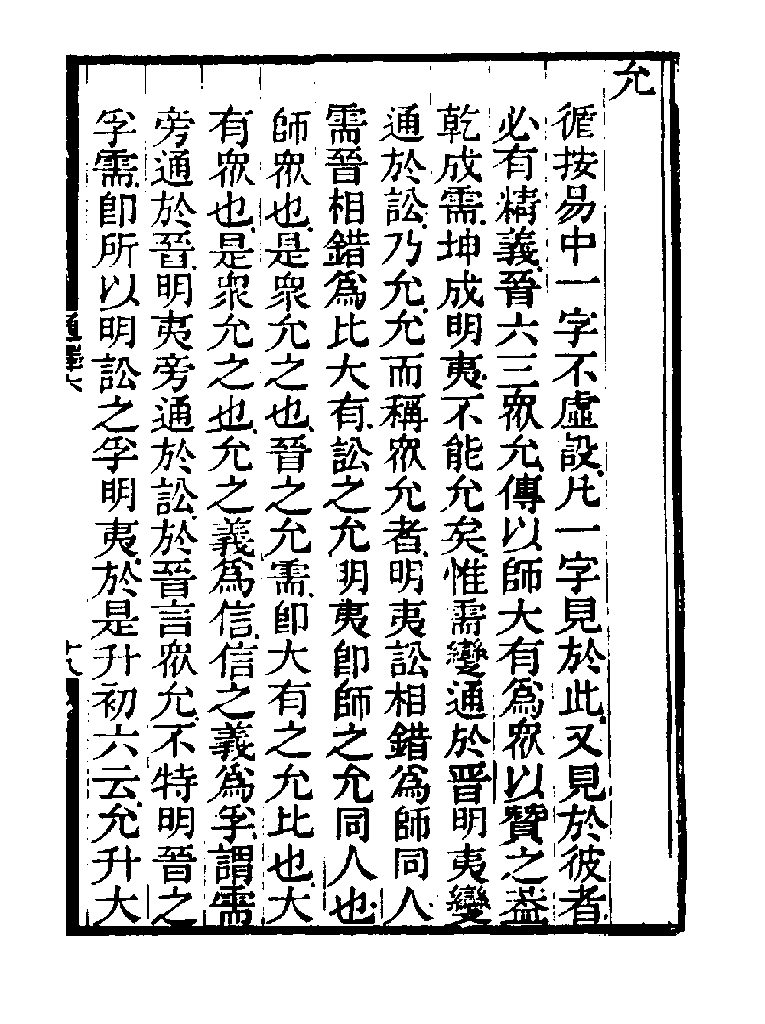 允
循按易中一字不虛設凡一字見於此又見於彼者
必有精義晉六三眾允傳以師大有爲眾以贊之葢
乾成需坤成明夷不能允矣惟需變通於晉明夷變
通於訟乃允允而稱眾允者明夷訟相錯爲師同人
需晉相錯爲比大有訟之允明夷卽師之允同人也
師眾也是衆允之也晉之允需卽大有之允比也大
有眾也是衆允之也允之義爲信信之義爲孚謂需
旁通於晉明夷旁通於訟於晉言眾允不特明晉之
孚需卽所以明訟之孚明夷於是升初六云允升大
通釋六
十八